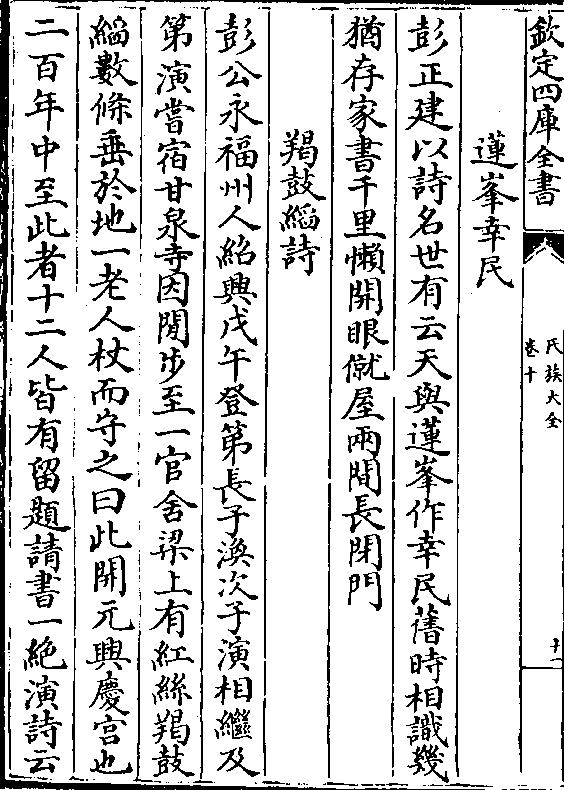 欽定四庫全書
氏族大全
卷十
十一
蓮峯幸民
彭正建以詩名世有云天與蓮峯作幸民舊時相識幾
猶存家書千里懶開眼僦屋兩間長閉門
羯鼓縚詩
彭公永福州人紹興戊午登第長子渙次子演相繼及
第演嘗宿甘泉寺因閒步至一官舍梁上有紅絲羯鼓
縚數條垂於地一老人杖而守之曰此開元興慶宫也
二百年中至此者十二人皆有留題請書一絶演詩云